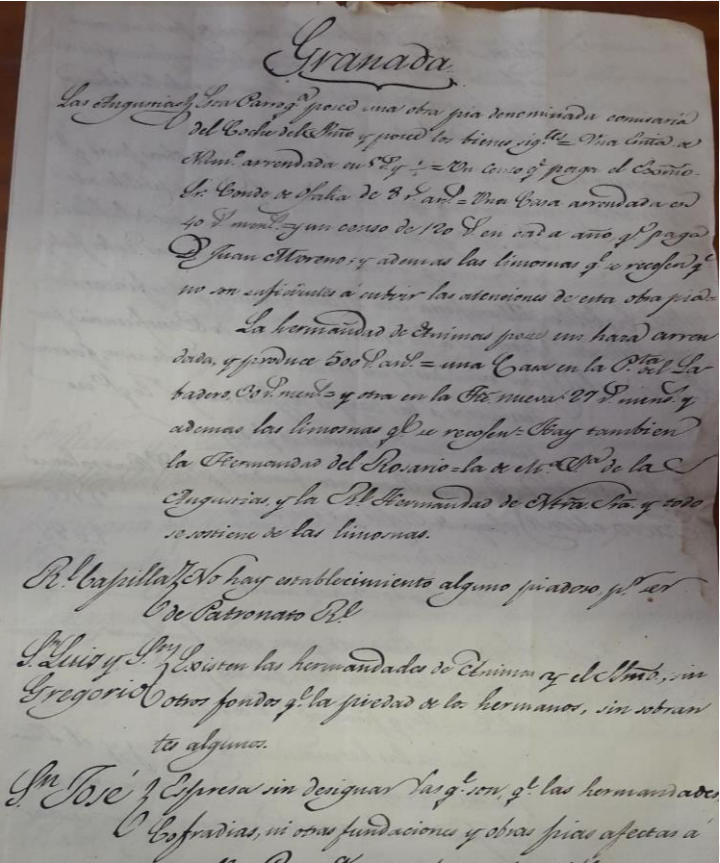 Granada.
Las Angustias } Esta Parroqª. posed una obra pia denominada comisaria
del Coche del Niño y posed los bienes sigtes. = Una
arrendada en = Un censo qe. paga el Exmo.
Sr. Conde de Ofalia de 8 rs. ans. = Una Casa arrendada en
40 rs. mens. = y un censo de 120 rs. en cada año, qe. paga
Dn. Juan Moreno; y ademas las limosnas qe. se recojen qe.
no son suficientes á cubrir las atenciones de esta obra piad=
La hermandad de Animas posee una haza arren
dada, y produce 500 rs. ans. = una Casa en la Pta. del La
badero, 30 rs. mens. = y otra en la nueva 27 rs. mens. y
ademas las limosnas qe. se recojen = Hay tambien
la Hermandad del Rosario = la de de la
Angustias, y la Rl. Hermandad de Ntra. Sra. y todo
se sostiene de las limosnas.
Rl. Capilla } No hay establecimiento alguno piadoso, pr. ser
de Patronato Rl.
Sn. Luis y Sn. } Existen las hermandades de Animas y el Niño, sin
Gregorio otros fondos qe. la piedad de los hermanos, sin sobran
tes algunos.
Sn. José } Espresa sin designar las qe. son, qe. las hermandades
Cofradias, ni otras fundaciones y obras pias afectas á